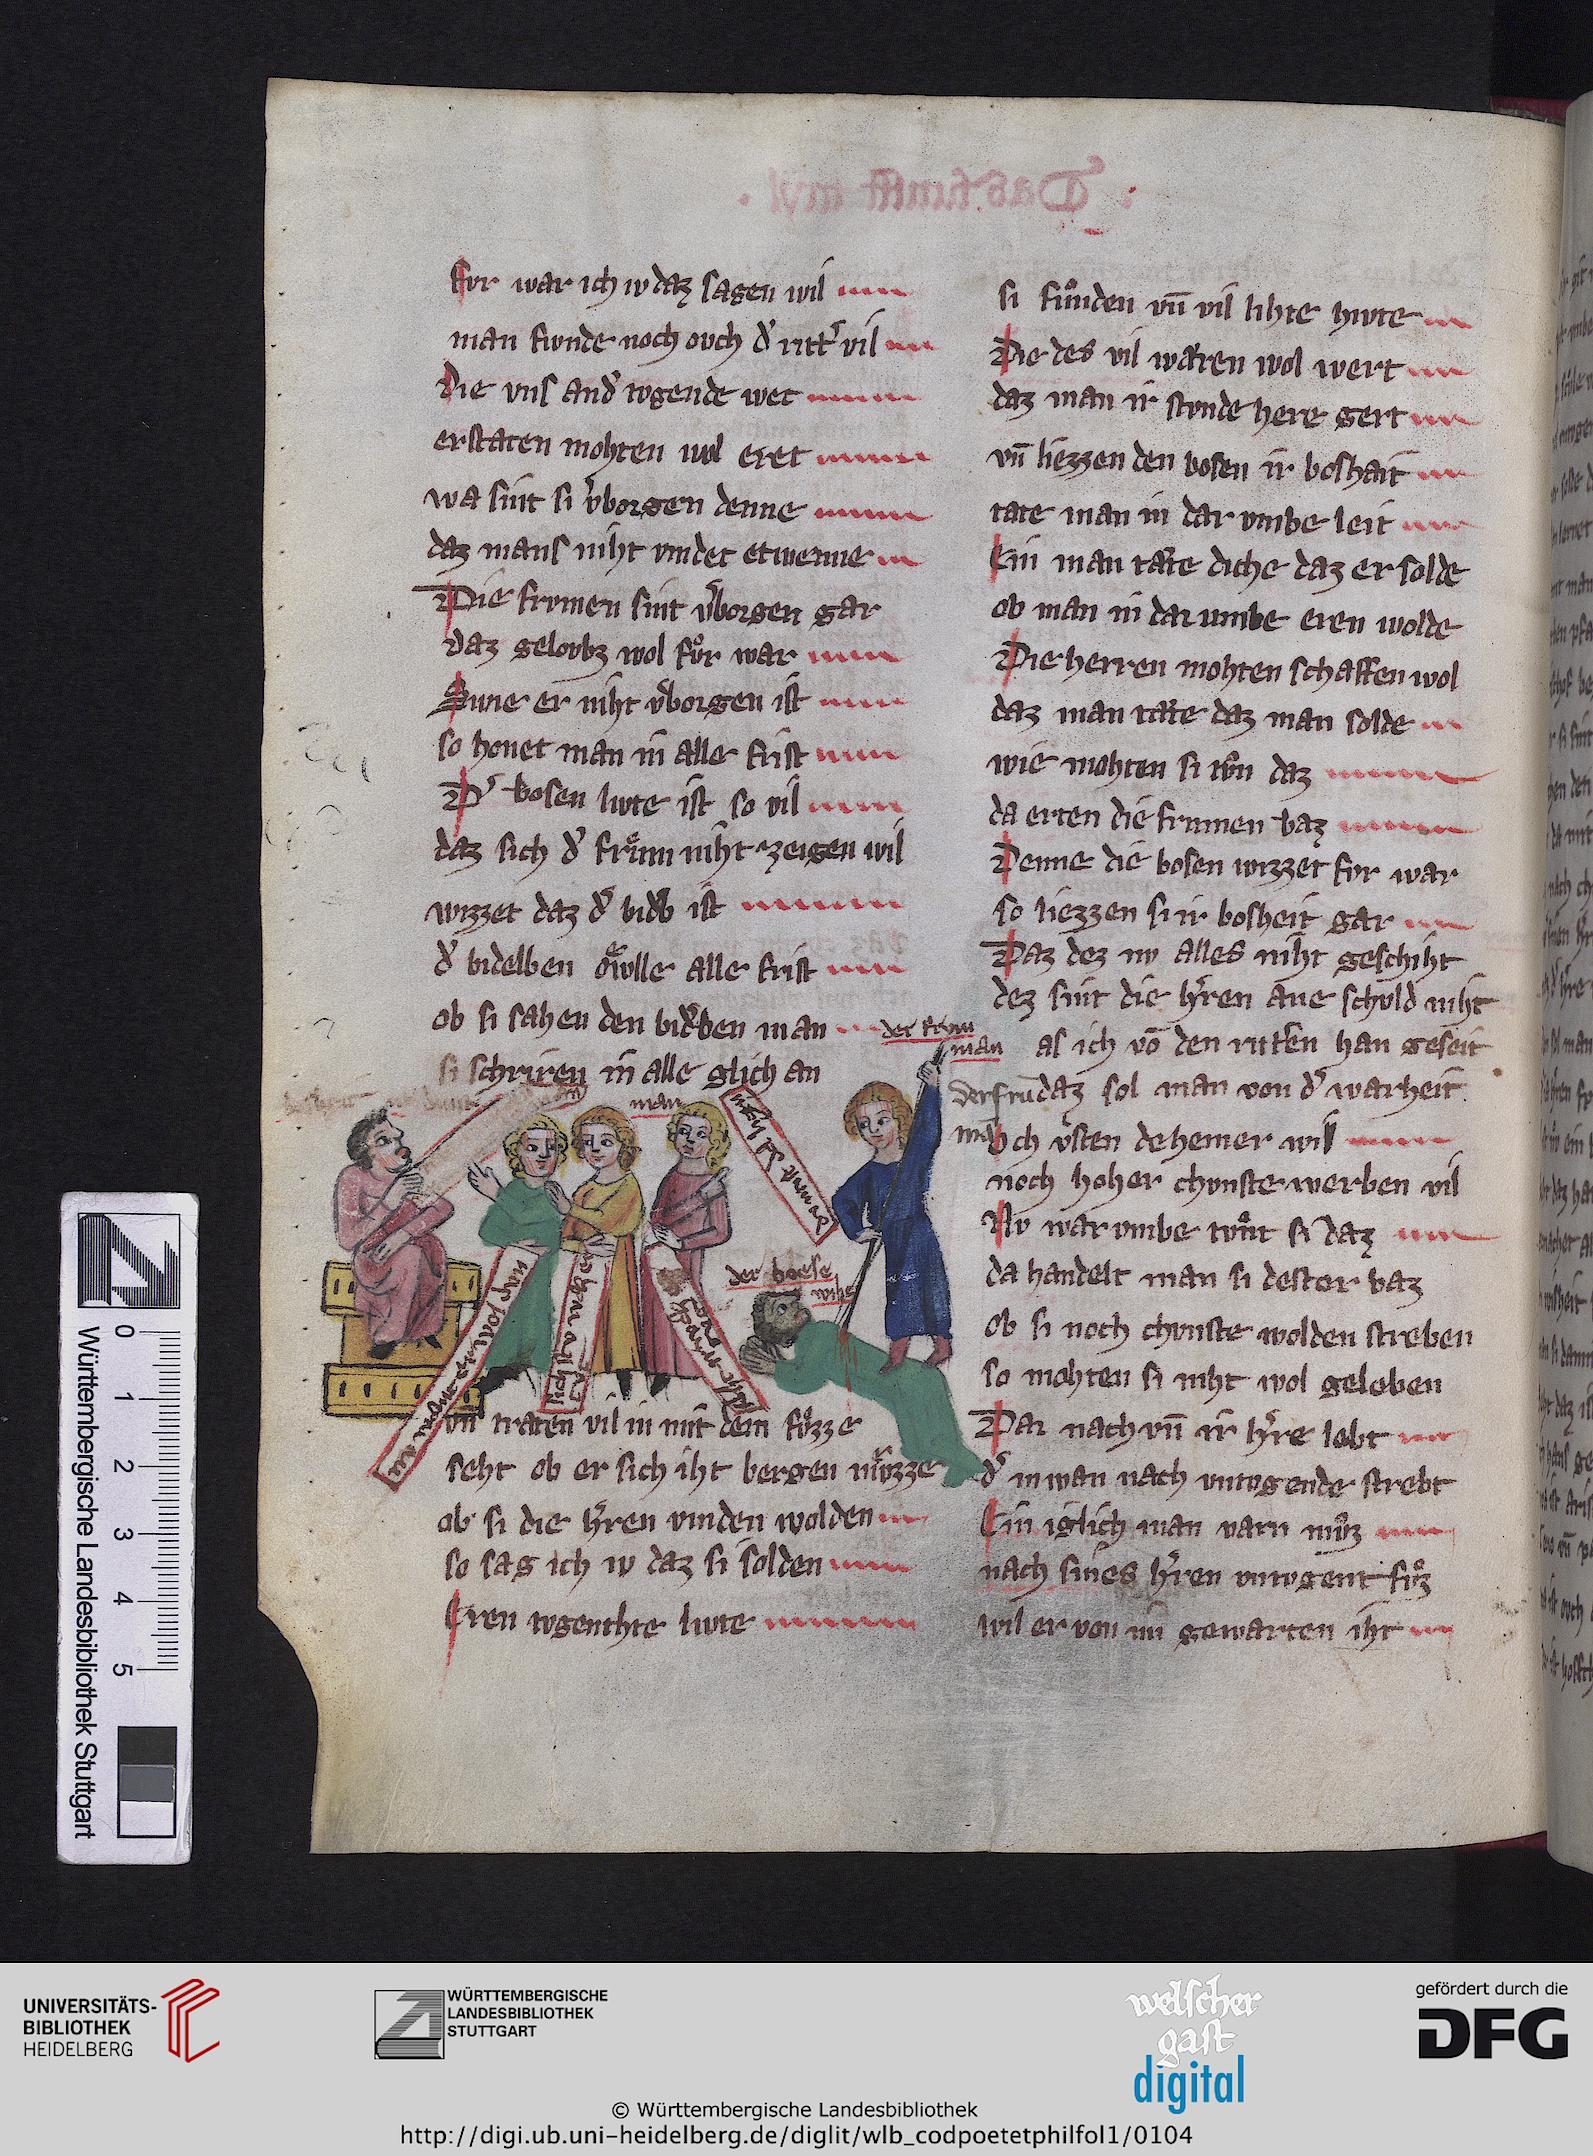 Fvr war ich iv daz sagen wil
man funde noch ovch d' ritt' vil
Die vns and' tvgende wet
erstaten mohten wol eret
wa sint si v'borgen denne
daz mans niht vindet etwenne
Die frvmen sint v'borgen gar
daz gelovbz wol für war
Swie er niht v'borgen ist
so honet man in alle frist
D' bosen livte ist so vil
daz sich d' frum niht zeigen wil
wizzet daz d' bid'b ist
d' bidelben alle frist
ob si sahen den bid'ben man
si schriren in alle glich an
vn̄ traten vil in mit dem fvzze
seht ob er sich iht bergen mvzze
ob si die h'ren vinden wolden
so sag ich iv daz si solden
Eren tvgenthte livte
der frvm
man
der frum
man
man
der boese
wiht
si funden vn̄ vil lihte hivte
Die des vil wæren wol wert
daz man ir stvnde here gert
vn̄ liezzen den bosen ir boshait
tate man in dar vmbe leit
Ein man tæte diche daz er solde
ob man in dar umbe eren wolde
Die herren mohten schaffen wol
daz man tæte daz man solde
wie mohten si tvn daz
da erten die frumen baz
Denne die bosen wizzet fvr war
so liezzen si ir bosheit gar
Daz dez nv alles niht geschiht
dez sint die h'ren ane schvld niht
als ich vō den ritt'en han geseit
daz sol man von d' warheit
Och v'sten dehemer wil
noch hoher chvnste werben vil
Nv war vmbe tvnt si daz
da handelt man si dester baz
ob si noch chvnste wolden streben
so mohten si niht wol geleben
Dar nach vn̄ ir h're lebt
d' niwan nach vntvgende strebt
Ein iglich man varn mvz
nach sines h'ren vntvgent fvz
wil er von im gewarten iht
Württembergische Landesbibliothek Stuttgart
0 1 2 3 4 5
UNIVERSITÄTS-
BIBLIOTHEK
HEIDELBERG
WÜRTTEMBERGISCHE
LANDESBIBLIOTHEK
STUTTGART
welscher
gast
digital
gefördert durch die
DFG
© Württembergische Landesbibliothek
http://digi.ub.uni-heidelberg.de/diglit/wlb_codpoetetphilfol1/0104